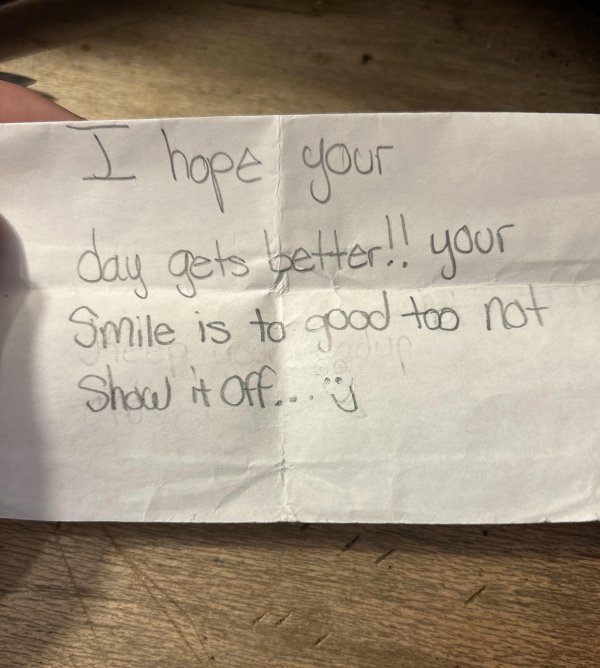 I hope your
day gets better!! your
Smile is to good too not
Show it Off... :)